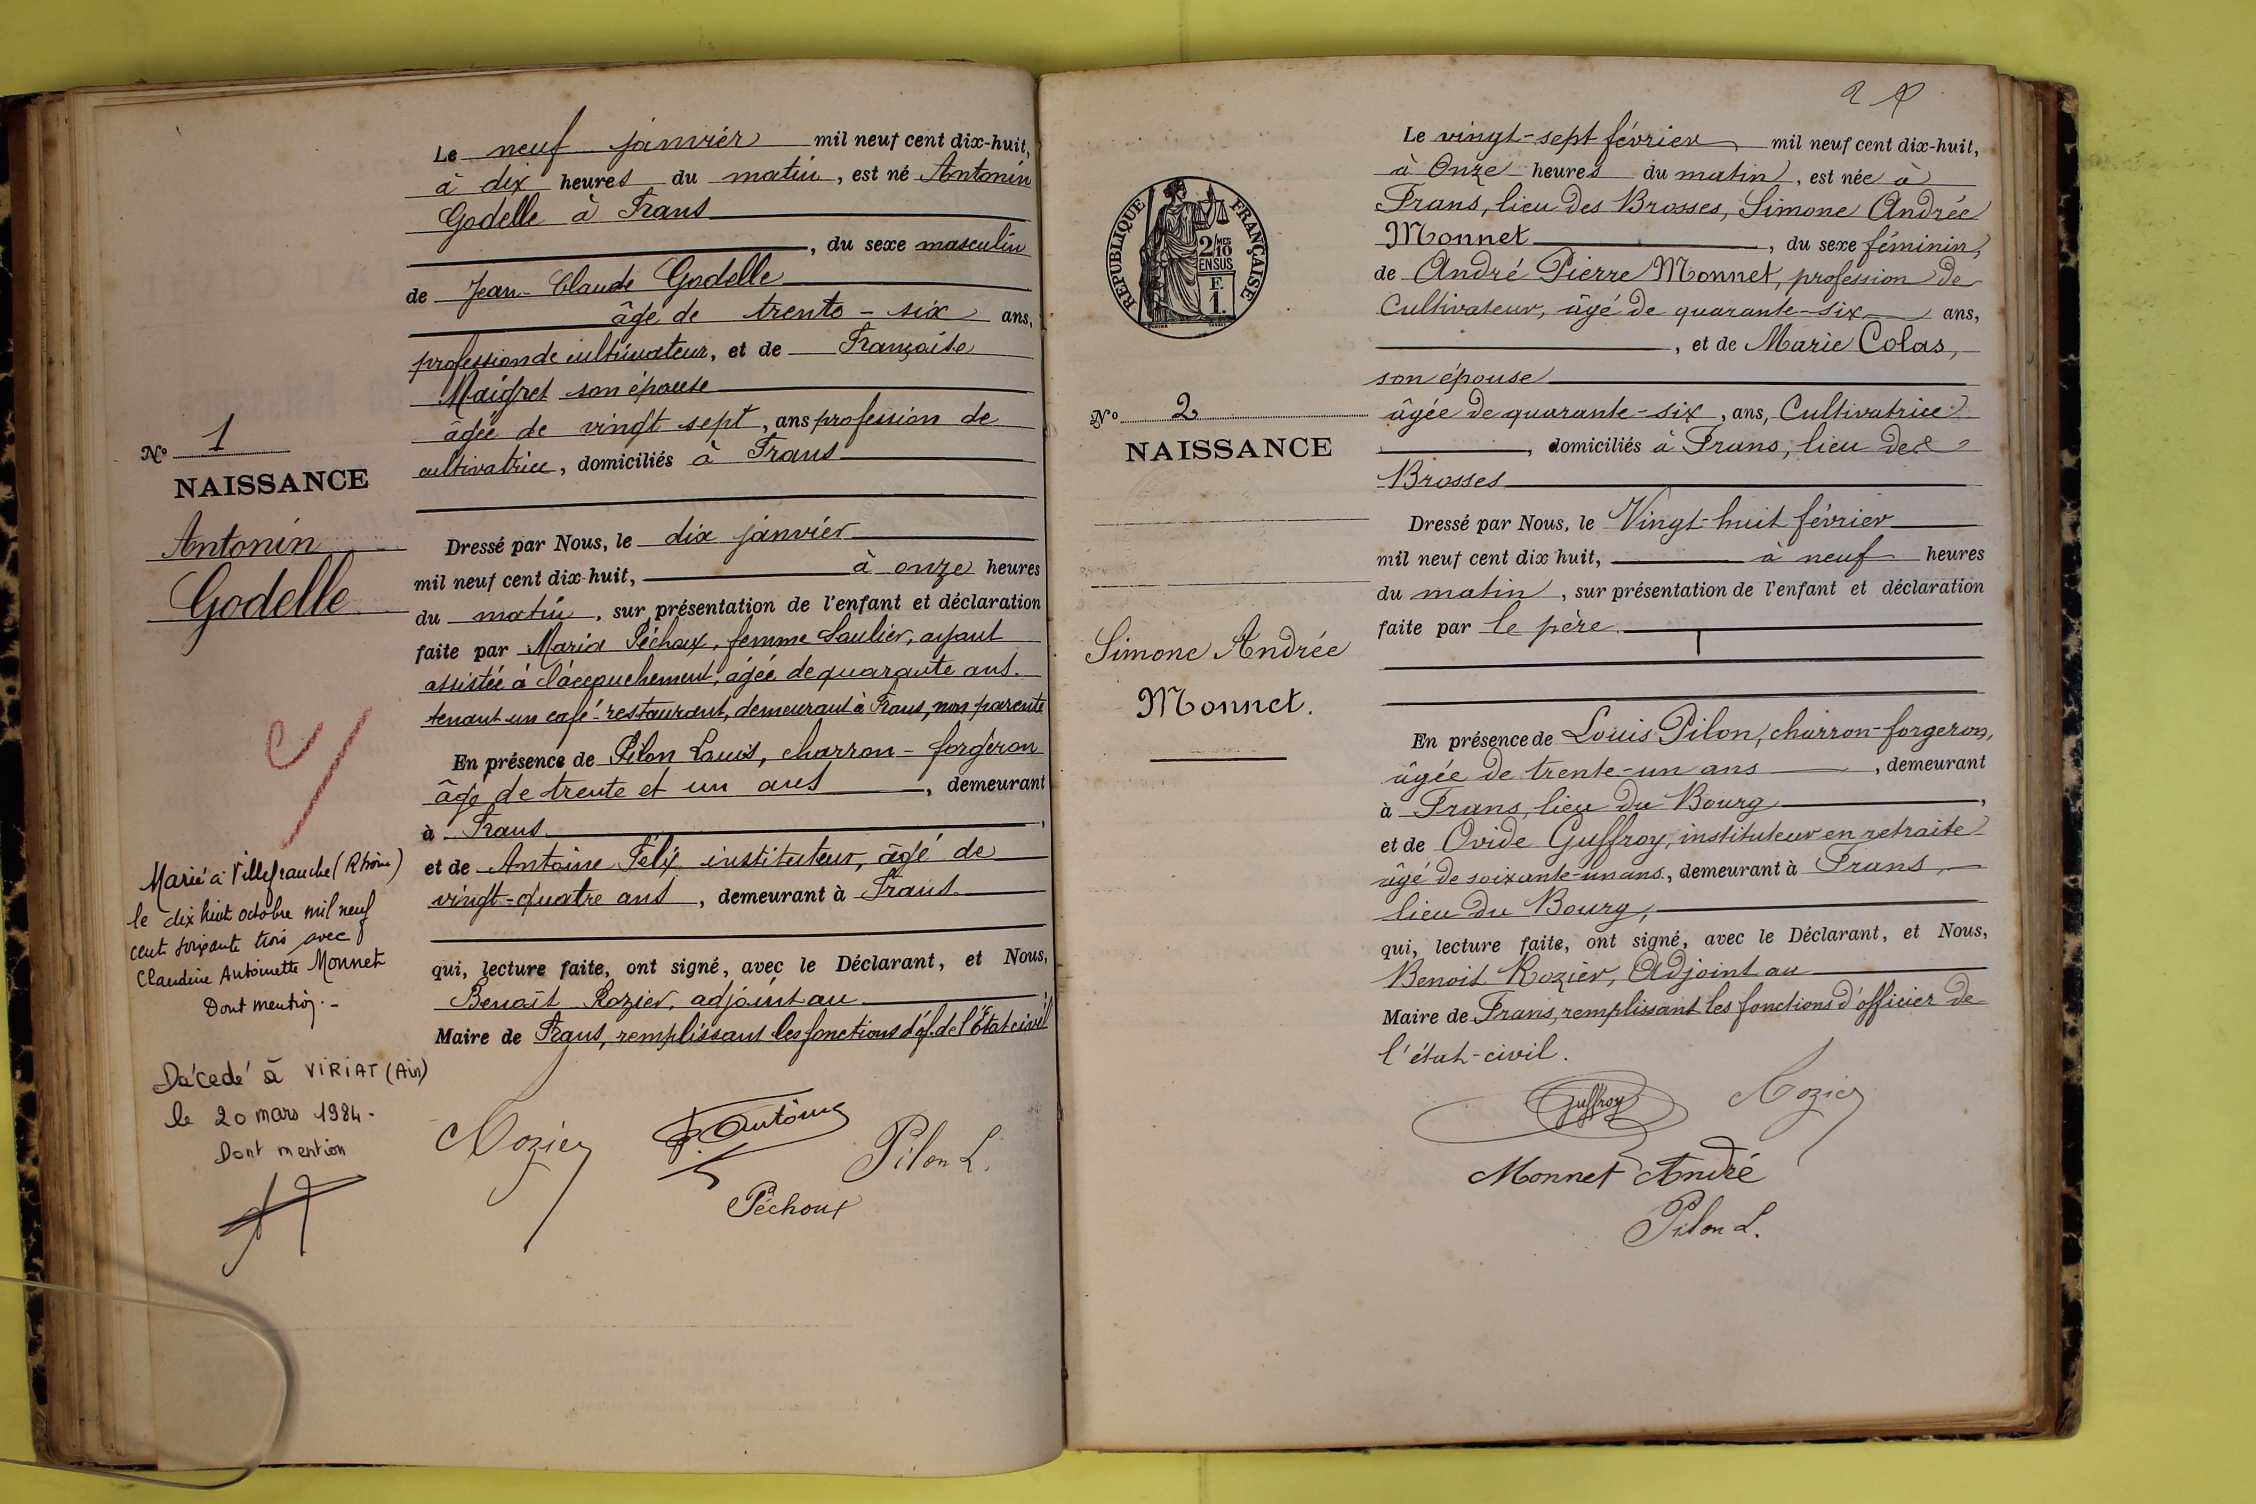 Le neuf janvier mil neuf cent dix-huit,
à dix heures du matin, est né Antonin
Godelle à Frans
, du sexe masculin
de Jean-Claude Godelle
âgé de trente-six ans,
profession de cultivateur, et de Françoise
Maigret son épouse
âgée de vingt sept, ans profession de
cultivatrice, domiciliés à Frans
Nº 1
NAISSANCE
Antonin
Godelle
Dressé par Nous, le dix janvier
mil neuf cent dix-huit, à onze heures
du matin, sur présentation de l'enfant et déclaration
faite par Maria Péchoux, femme Saulier, ayant
assistée à l'accouchement, âgée de quarante ans.
tenant un café-restaurant, demeurant à Frans, non parente
En présence de Pilon Louis, charron-forgeron
âgé de trente et un ans, demeurant
à Frans,
et de Antoine Félix instituteur, âgé de
vingt-quatre ans, demeurant à Frans
qui, lecture faite, ont signé, avec le Déclarant, et Nous,
Benoît Rozier, adjoint au
Maire de Frans, remplissant les fonctions d'of. de l'Etat civil
Marié à Villefranche (Rhône)
le dix huit octobre mil neuf
cent soixante trois avec
Claudine Antoinette Monnet
Dont mention.-
Décedé à VIRIAT (Ain)
le 20 mars 1984-
Dont mention
Rozier
F. Antoine
Pilon L.
Péchoux
2
RÉPUBLIQUE FRANÇAISE
2/10 MES
EN SUS
F.
1.
Le vingt-sept février mil neuf cent dix-huit,
à Onze heures du matin, est née à
Frans, lieu des Brosses, Simone Andrée
Monnet, du sexe féminin,
de André Pierre Monnet, profession de
Cultivateur, âgé de quarante-six ans,
, et de Marie Colas,
son épouse
âgée de quarante-six, ans, Cultivatrice
, domiciliés à Frans, lieu des
Brosses
Nº 2
NAISSANCE
Simone Andrée
Monnet.
Dressé par Nous, le Vingt-huit février
mil neuf cent dix huit, à neuf heures
du matin, sur présentation de l'enfant et déclaration
faite par le père
En présence de Louis Pilon, charron-forgeron,
âgée de trente-un ans, demeurant
à Frans, lieu du Bourg,
et de Ovide Guffroy, instituteur en retraite
âgé de soixante-un ans, demeurant à Frans,
lieu du Bourg,
qui, lecture faite, ont signé, avec le Déclarant, et Nous,
Benoit Rozier, Adjoint au
Maire de Frans, remplissant les fonctions d'officier de
l'état-civil.
Guffroy
Rozier
Monnet André
Pilon L.